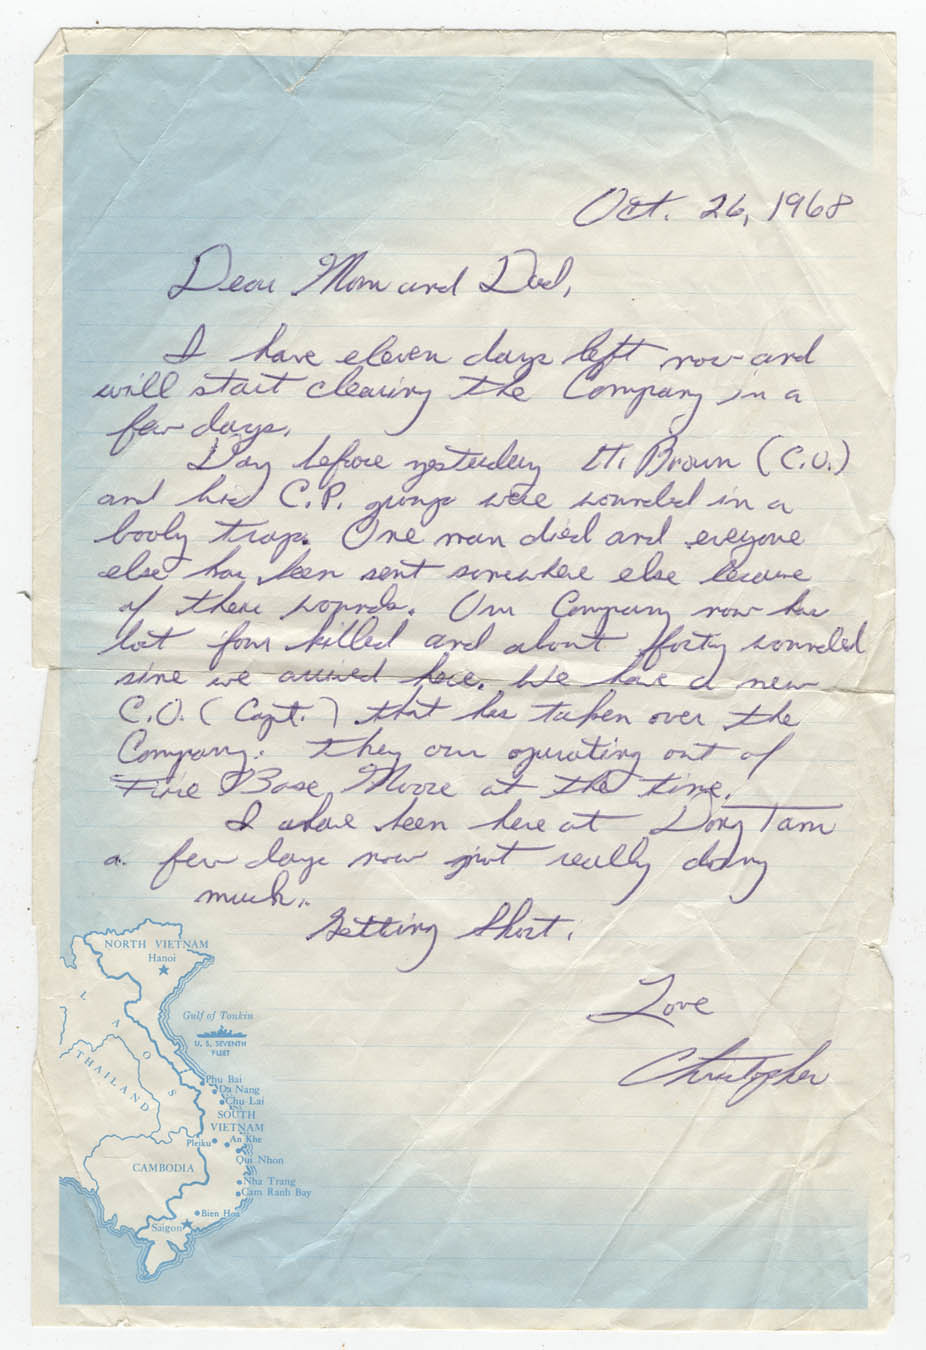 Oct. 26, 1968
Dear Mom and Dad,
I have eleven days left now and
will start clearing the Company in a
few days.
Day before yesterday Lt. Brown (C.O.)
and his C.P. group were wounded in a
booby trap. One man died and everyone
else has been sent somewhere else because
of there wounds. Our Company now has
lost four killed and about forty wounded
sine we arrived here. We have a new
C.O. (Capt.) that has taken over the
Company. They are operating out of
Fire Base Moore at the time.
I have been here at Dong Tam
a few days now not really doing
much.
Getting Short.
Love
Christopher
NORTH VIETNAM
Hanoi
LAOS
Gulf of Tonkin
U. S. SEVENTH
FLEET
THAILAND
Phu Bai
Da Nang
Chu Lai
SOUTH
VIETNAM
Pleiku
An Khe
Qui Nhon
CAMBODIA
Nha Trang
Cam Ranh Bay
Bien Hoa
Saigon